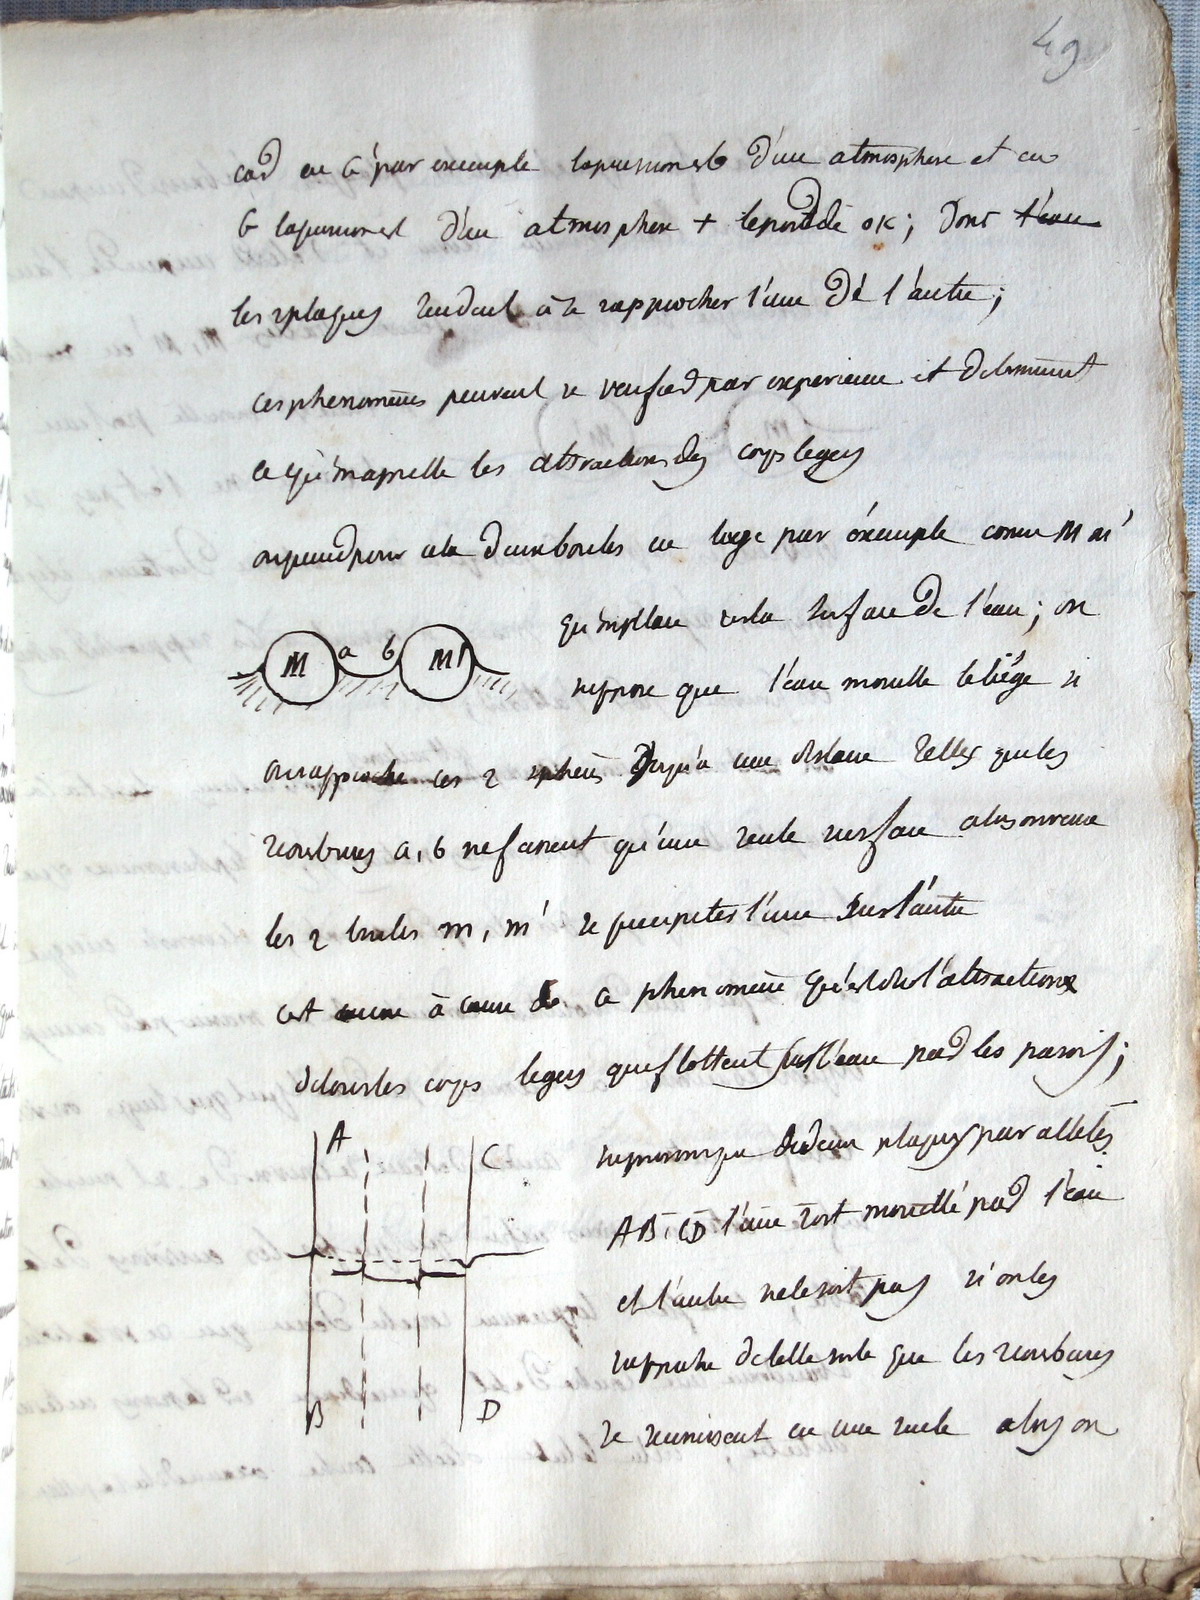 49
car en b' par exemple la pression est d'une atmosphere et en
b la pression est d'une atmosphere + le poid de OK; donc l'eau
les 2 plaques tendent à se rapprocher l'une de l'autre;
ces phenomenes peuvent se verifier par experience et determinent
ce qu'on appelle les attractions des corps legers
on prend pour cela deux boules en liege par éxemple comme M M'
qu'on place sur la surface de l'eau; on
M a b M'
suppose que l'eau mouille le liége si
on rapproche ces 2 spheres jusqu'a une distance telle que les
courbures a, b ne fassent qu'une seule surface alors on verra
les 2 boules m, m' se precipiter l'une sur l'autre
c'est à cause de ce phenomene qu'est due l'attraction
de tous les corps legers qui flottent sur l'eau par les parois;
A
C
supposons que de deux plaques paralleles
AB, CD l'une soit mouillé par l'eau
et l'autre ne le soit pas si on les
rapproche de telle sorte que les courbures
B
D
se reunissent en une seule alors on